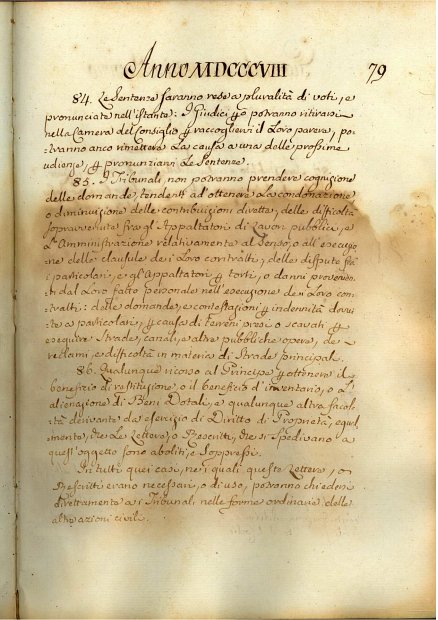 Anno MDCCCVIII 79
84. Le Sentenze saranno rese a pluralità di voti, e
pronunciate nell'istante: I Giudici però potranno ritirarsi
nella Camera del Consiglio per raccogliervi il Loro parere, po-
tranno anco rimettere La causa a una delle prossime
udienze, per pronunziarvi Le Sentenze.
85. I Tribunali non potranno prendere cognizione
delle domande, tendenti ad ottenere La condonazione
o diminuzione delle contribuzioni dirette, delle difficoltà
sopravvenute fra gl'Appaltatori di Lavori pubblici, e
L'Amministrazione relativamente al Senso, o all'esecuzio-
ne delle clausule dei Loro contratti, delle dispute fra
i particolari, e gl'Appaltatori per torti, o danni provenien-
ti dal Loro fatto personale nell'esecuzione dei Loro con-
tratti: delle domande, e contestazioni per indennità dovu-
te a particolari, per causa di terreni presi o scavati per
eseguire Strade, canali, e altre pubbliche opere, de
reclami, e difficoltà in materia di Strade principali.
86. Qualunque ricorso al Principe per ottenere il
beneficio di restituzione, o il beneficio d'inventario, o L'a
alienazione di Beni Dotali, e qualunque altra facol
tà derivante da esercizio di Diritto di Proprietà, equal
mente, che Le Lettere, o Rescritti, che si Spedivano a
quest'oggetto sono aboliti, e Soppressi.
In tutti quei casi, nei quali queste Lettere, o
Rescritti erano necessari, o di uso, potranno chiedersi
direttamente ai Tribunali nelle forme ordinarie delle
altre azioni civili.